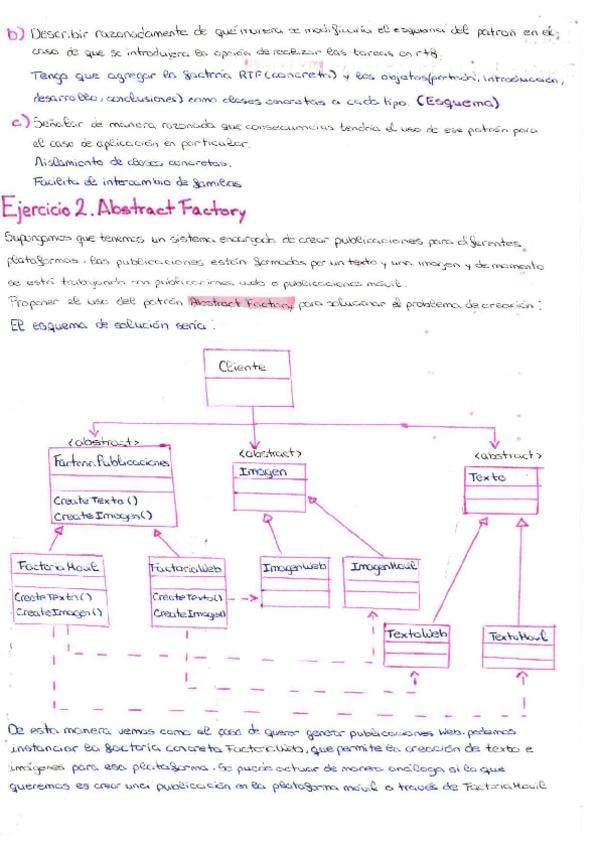 b) Describir razonadamente de qué manera se modificaría el esquema del patrón en el
caso de que se introdujera la opción de realizar las tareas en rtf.
Tengo que agregar la factoria RTF (concreta) y los objetos (portada, introducción,
desarrollo, conclusiones) como clases concretas a cada tipo. (Esquema)
c) Señalar de manera razonada que consecuencias tendría el uso de ese patrón para
el caso de aplicación en particular.
Aislamiento de clases concretas.
Facilita el intercambio de familias
Ejercicio 2. Abstract Factory
Supongamos que tenemos un sistema encargado de crear publicaciones para diferentes
plataformas. Las publicaciones están formadas por un texto y una imagen y de momento
se está trabajando con publicaciones web o publicaciones móvil.
Proponer el uso del patrón Abstract Factory para solucionar el problema de creación:
El esquema de solución sería:
Cliente
<abstract>
FactoriaPublicaciones
CreateTexto()
CreateImagen()
<abstract>
Imagen
<abstract>
Texto
FactoriaMovil
CreateTexto()
CreateImagen()
FactoriaWeb
CreateTexto()
CreateImagen()
ImagenWeb
ImagenMovil
TextoWeb
TextoMovil
De esta manera vemos como el caso de querer generar publicaciones Web, podemos
instanciar la factoría concreta FactoriaWeb, que permite la creación de texto e
imágenes para esa plataforma. Se puede actuar de manera análoga si lo que
queremos es crear una publicación en la plataforma móvil a través de FactoriaMovil